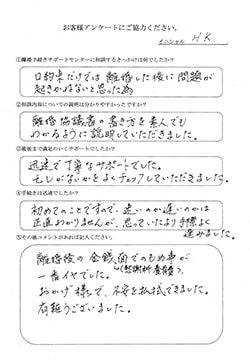 お客様アンケートにご協力ください。
イニシャル H.K
①離婚手続きサポートセンターに相談するきっかけは何でしたか?
口約束だけでは離婚した後に問題が
起きかねないと思った為
②相談内容についての説明は分かりやすかったですか?
離婚協議書の書き方を素人でも
わかるように説明していただきました。
③最後まで満足のいくサポートでしたか?
迅速で丁寧なサポートでした。
もしがないかをよくチェックしていただきました。
④手続きは迅速でしたか?
初めてのことですので、速いのか遅いのかは
正直わかりませんが、思っていたより手際よく
進みました。
⑤その他コメントがあれば記入ください。
離婚後の金銭面でのもめ事が
(慰謝料・養育費)
一番イヤでした。
おかげ様で、不安を払拭できました。
有難うございました。